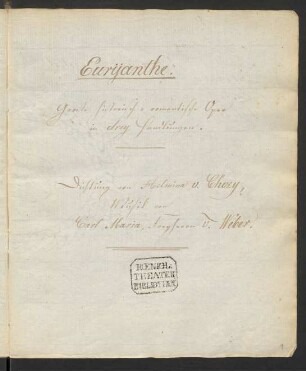 Euryanthe.
Große historisch-romantische Oper
in drey Handlungen.
Dichtung von Helmina v. Chezy,
Musik von
Carl Maria, Freyherrn v. Weber.
THEATER
BIBLIOTHEK